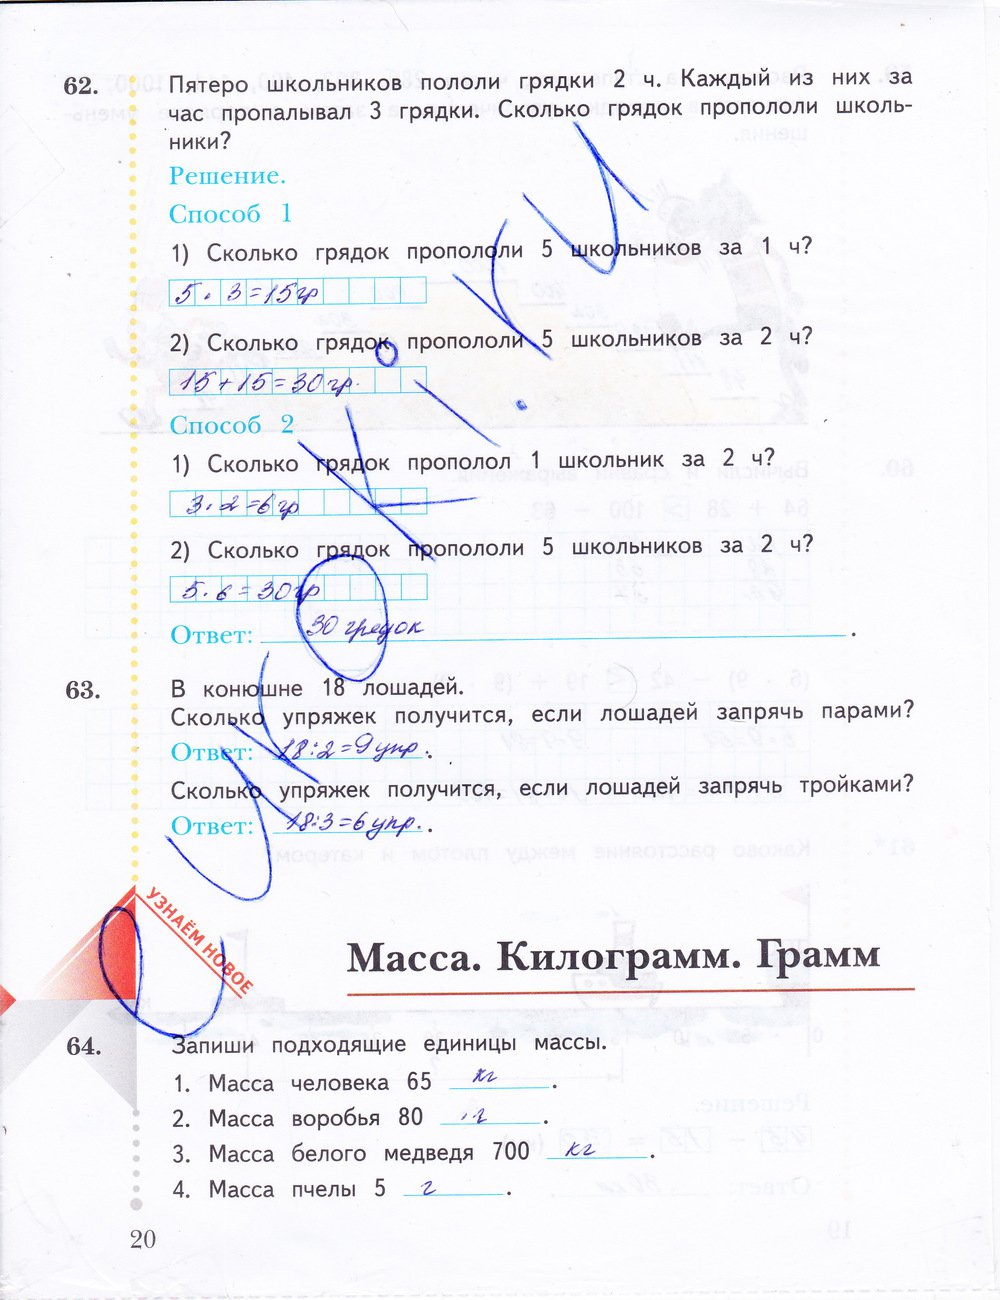 62. Пятеро школьников пололи грядки 2 ч. Каждый из них за
час пропалывал 3 грядки. Сколько грядок пропололи школь-
ники?
Решение.
Способ 1
1) Сколько грядок пропололи 5 школьников за 1 ч?
5 · 3 = 15 гр
2) Сколько грядок пропололи 5 школьников за 2 ч?
15 + 15 = 30 гр.
Способ 2
1) Сколько грядок прополол 1 школьник за 2 ч?
3 · 2 = 6 гр
2) Сколько грядок пропололи 5 школьников за 2 ч?
5 · 6 = 30 гр
Ответ: 30 грядок.
63. В конюшне 18 лошадей.
Сколько упряжек получится, если лошадей запрячь парами?
Ответ: 18:2=9 упр.
Сколько упряжек получится, если лошадей запрячь тройками?
Ответ: 18:3=6 упр.
УЗНАЁМ НОВОЕ
Масса. Килограмм. Грамм
64. Запиши подходящие единицы массы.
1. Масса человека 65 кг.
2. Масса воробья 80 г.
3. Масса белого медведя 700 кг.
4. Масса пчелы 5 г.
20